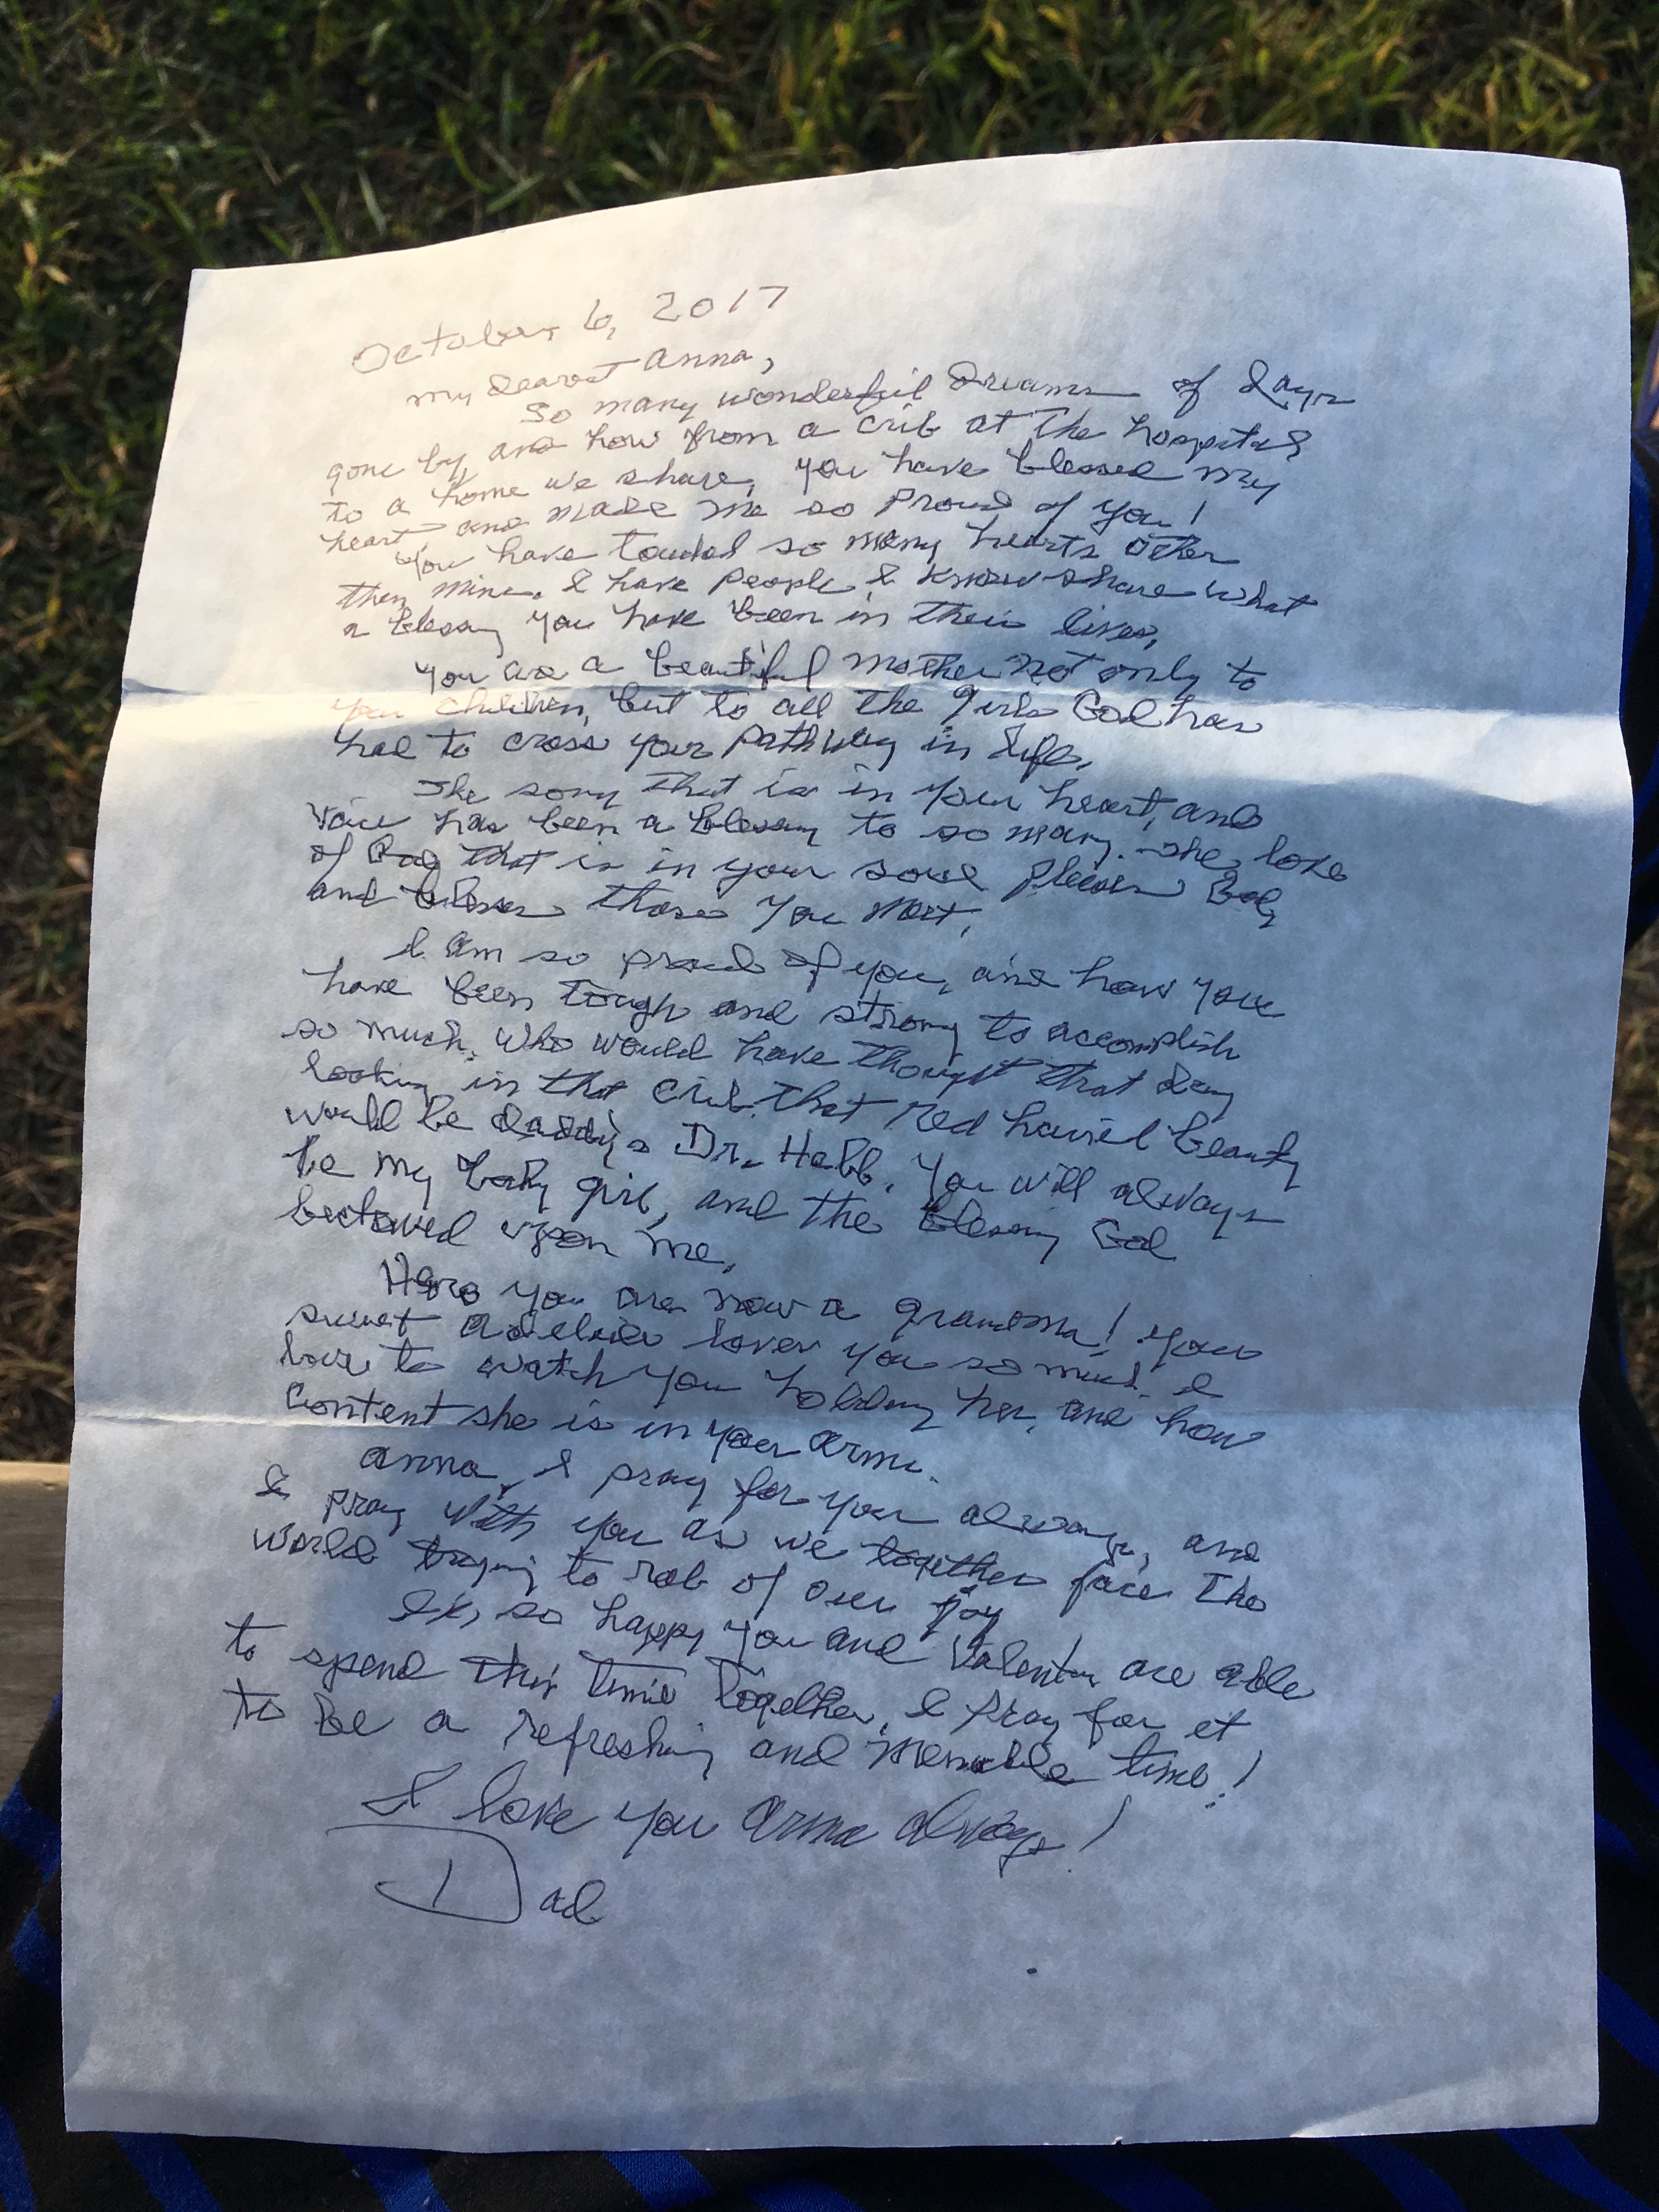 October 6, 2017
My dearest Anna,
So many wonderful dreams of days
gone by, and how from a crib at the hospital
to a home we share, you have blessed my
heart, and made me so proud of you!
You have touched so many hearts other
then mine. I have people I know share what
a blessing you have been in their lives.
You are a beautiful mother not only to
your children, but to all the girls God has
had to cross your pathway in life.
The song that is in your heart, and
voice has been a blessing to so many. The love
of God that is in your soul pleases God,
and blesses those you meet.
I am so proud of you, and how you
have been tough and strong to accomplish
so much. Who would have thought that day
looking in that crib that red haired beauty
would be daddy's Dr. Hebb. You will always
be my baby girl, and the blessing God
bestowed upon me.
Here you are now a grandma! Your
sweet loves you so much. I
love to watch you holding her, and how
content she is in your arms.
Anna, I pray for you always, and
I pray with you as we together face the
world trying to rob of our joy
so happy you and are able
to spend this time together, I pray for it
to be a refreshing and time!
I love you Anna always!
Dad